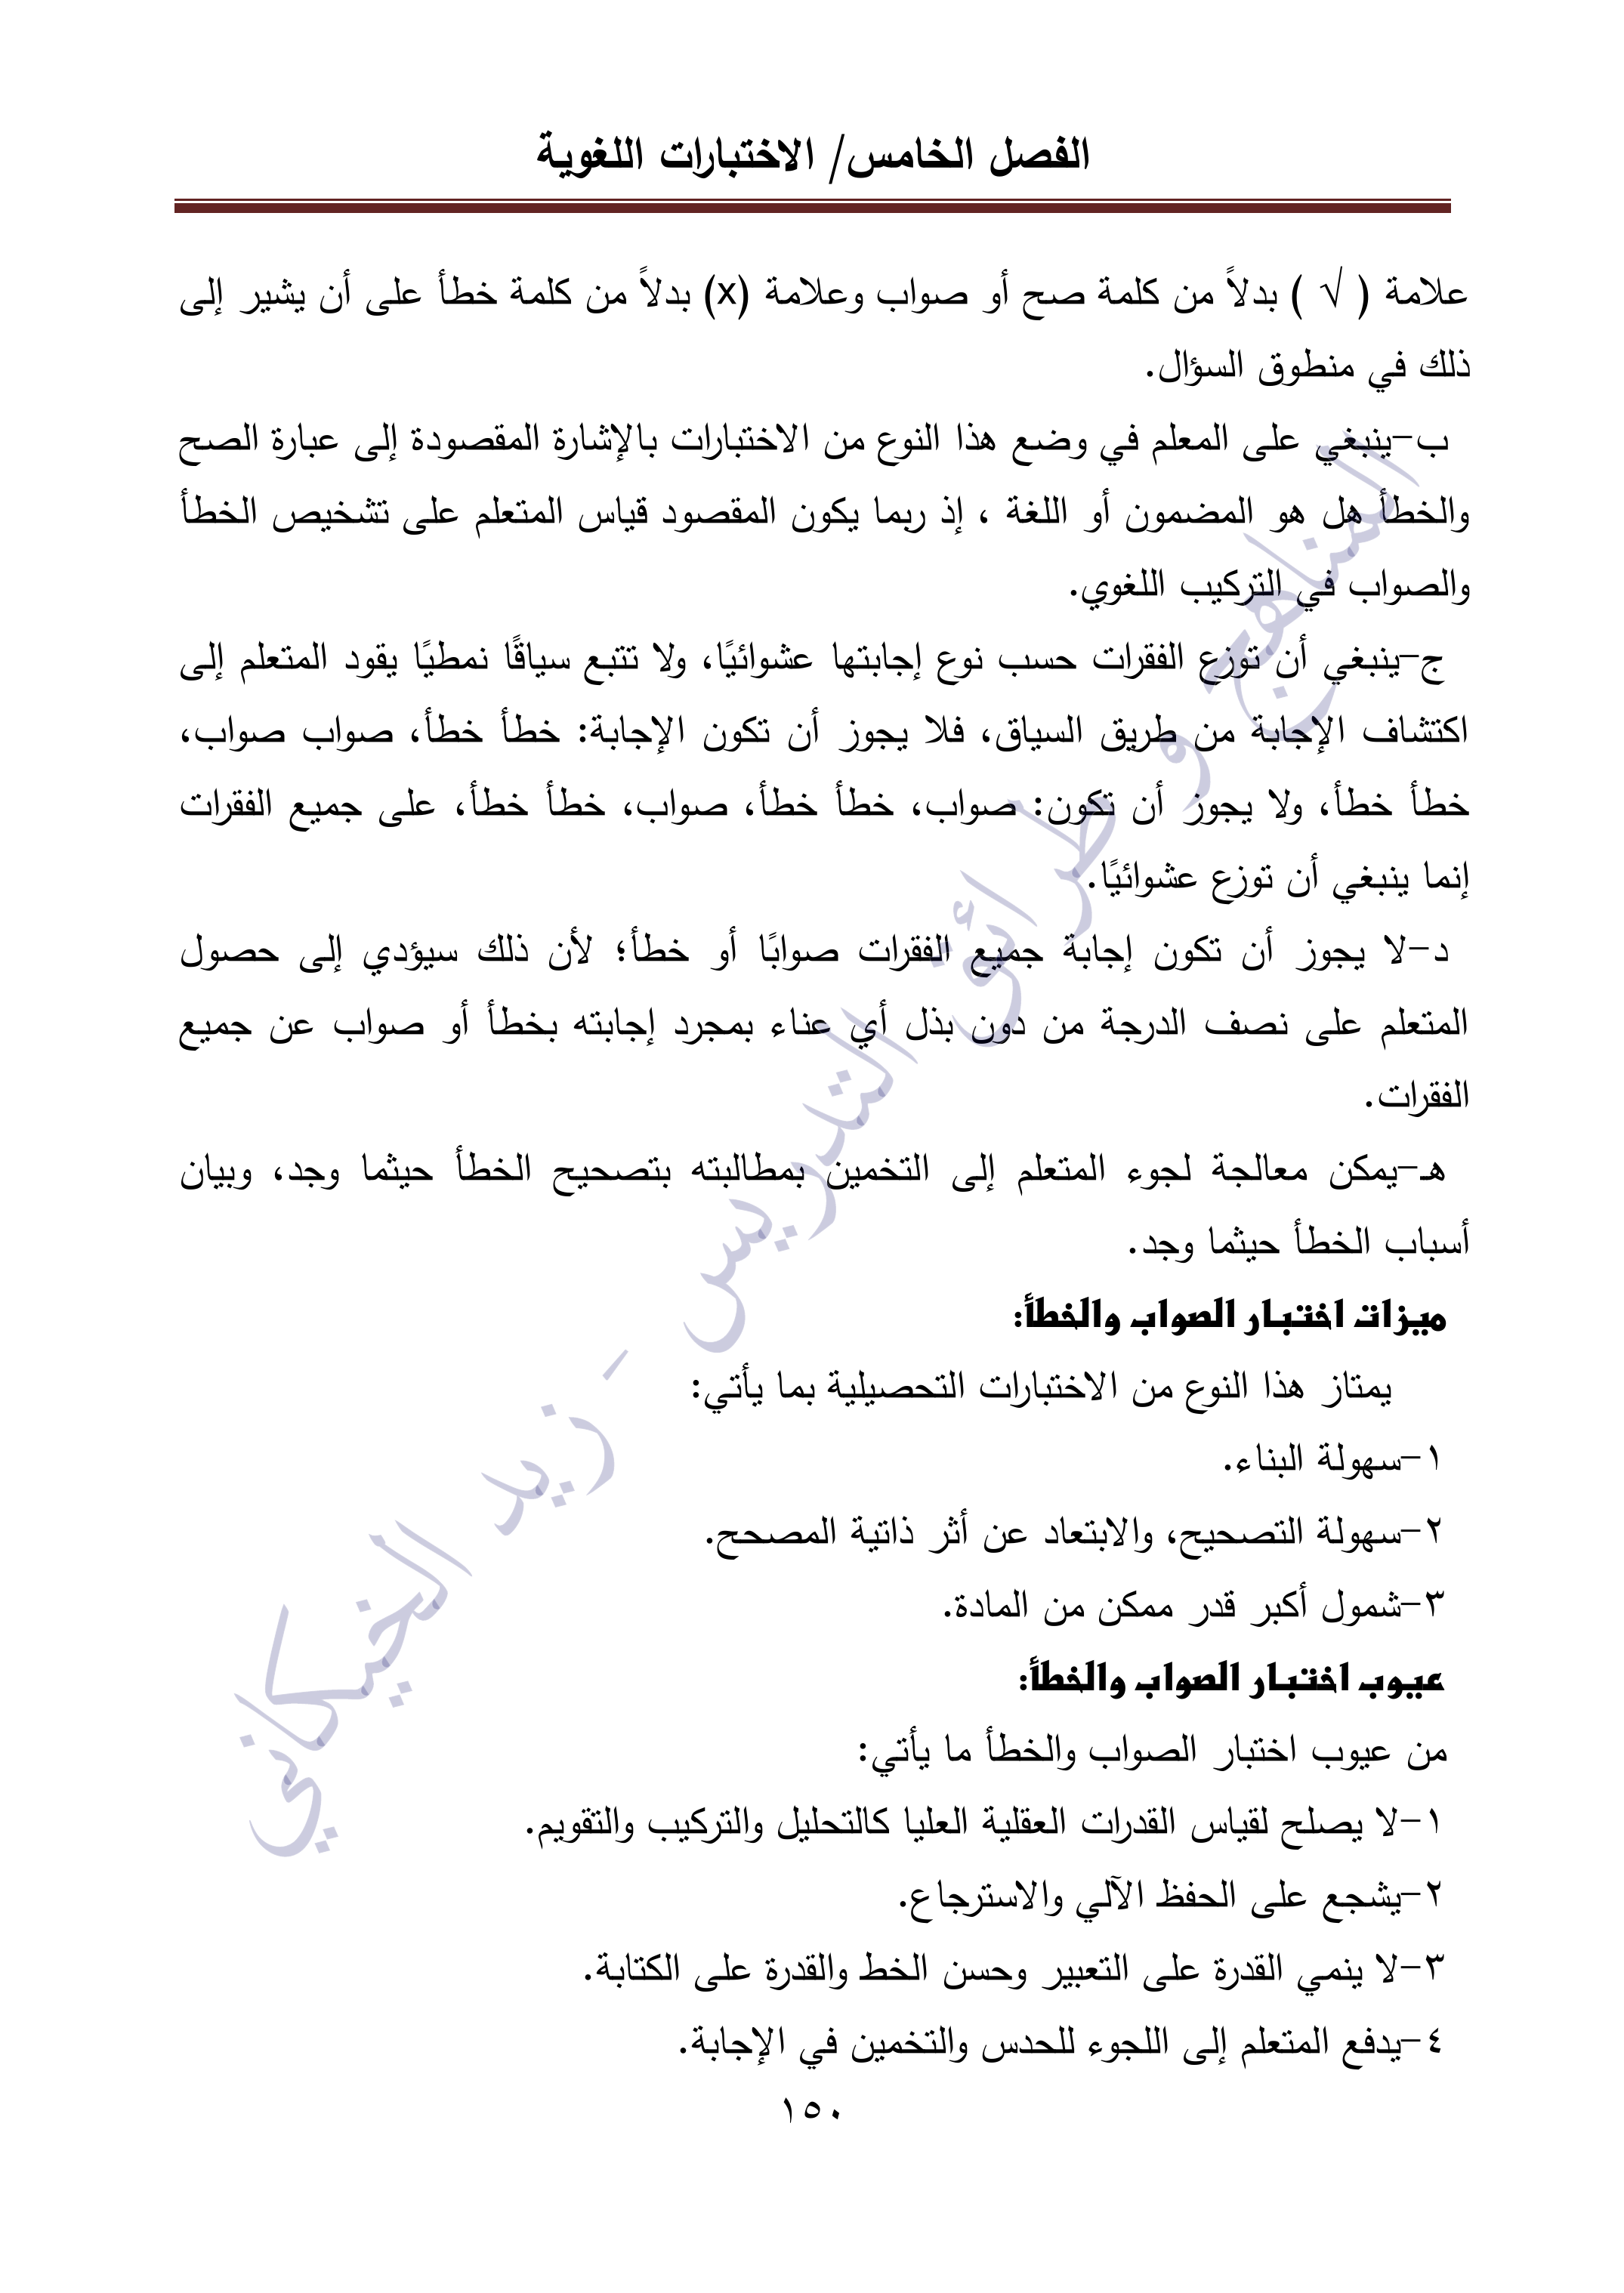 الفصل الخامس/ الاختبارات اللغوية
علامة ( √ ) بدلاً من كلمة صح أو صواب وعلامة (x) بدلاً من كلمة خطأ على أن يشير إلى
ذلك في منطوق السؤال.
ب-ينبغي على المعلم في وضع هذا النوع من الاختبارات بالإشارة المقصودة إلى عبارة الصح
والخطأ هل هو المضمون أو اللغة ، إذ ربما يكون المقصود قياس المتعلم على تشخيص الخطأ
والصواب في التركيب اللغوي.
ج-ينبغي أن توزع الفقرات حسب نوع إجابتها عشوائيًا، ولا تتبع سياقًا نمطيًا يقود المتعلم إلى
اكتشاف الإجابة من طريق السياق، فلا يجوز أن تكون الإجابة: خطأ خطأ، صواب صواب،
خطأ خطأ، ولا يجوز أن تكون: صواب، خطأ خطأ، صواب، خطأ خطأ، على جميع الفقرات
إنما ينبغي أن توزع عشوائيًا.
د-لا يجوز أن تكون إجابة جميع الفقرات صوابًا أو خطأ؛ لأن ذلك سيؤدي إلى حصول
المتعلم على نصف الدرجة من دون بذل أي عناء بمجرد إجابته بخطأ أو صواب عن جميع
الفقرات.
هـ-يمكن معالجة لجوء المتعلم إلى التخمين بمطالبته بتصحيح الخطأ حيثما وجد، وبيان
أسباب الخطأ حيثما وجد.
ميزات اختبار الصواب والخطأ:
يمتاز هذا النوع من الاختبارات التحصيلية بما يأتي:
١-سهولة البناء.
٢-سهولة التصحيح، والابتعاد عن أثر ذاتية المصحح.
٣-شمول أكبر قدر ممكن من المادة.
عيوب اختبار الصواب والخطأ:
من عيوب اختبار الصواب والخطأ ما يأتي:
١-لا يصلح لقياس القدرات العقلية العليا كالتحليل والتركيب والتقويم.
٢-يشجع على الحفظ الآلي والاسترجاع.
٣-لا ينمي القدرة على التعبير وحسن الخط والقدرة على الكتابة.
٤-يدفع المتعلم إلى اللجوء للحدس والتخمين في الإجابة.
١٥٠
المناهج و طرائق التدريس - زيد الخيكاني